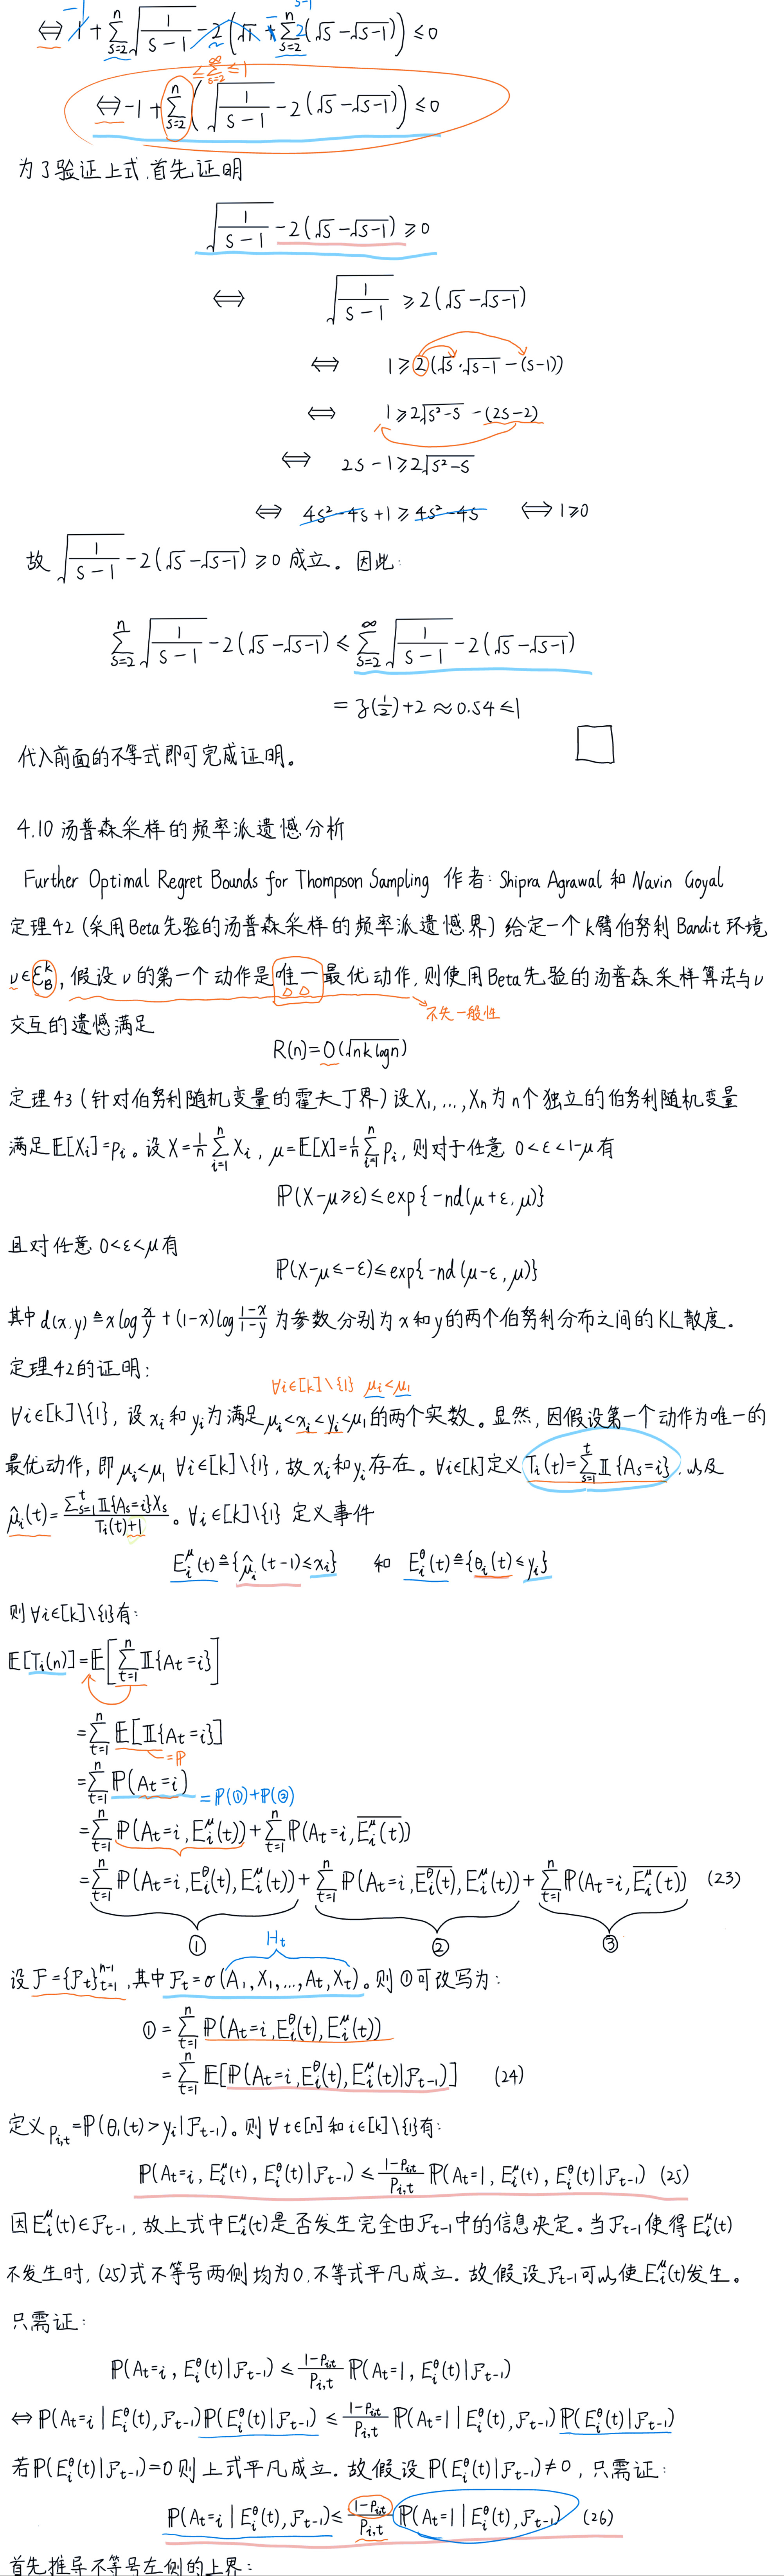 ⟺ -1 + Σ_{s=2}^{n} √(1/(s-1)) - 2(√1 + Σ_{s=2}^{n} (√s - √(s-1))) ≤ 0
≤ Σ_{s=2}^{∞} ≤ 1
⟺ -1 + Σ_{s=2}^{n} (√(1/(s-1)) - 2(√s - √(s-1))) ≤ 0
为了验证上式,首先证明
√(1/(s-1)) - 2(√s - √(s-1)) ≥ 0
⟺ √(1/(s-1)) ≥ 2(√s - √(s-1))
⟺ 1 ≥ 2(√s·√(s-1) - (s-1))
⟺ 1 ≥ 2√(s²-s) - (2s-2)
⟺ 2s-1 ≥ 2√(s²-s)
⟺ 4s²-4s+1 ≥ 4s²-4s ⟺ 1≥0
故 √(1/(s-1)) - 2(√s - √(s-1)) ≥ 0 成立。因此:
Σ_{s=2}^{n} √(1/(s-1)) - 2(√s - √(s-1)) ≤ Σ_{s=2}^{∞} √(1/(s-1)) - 2(√s - √(s-1))
= ζ(1/2)+2 ≈ 0.54 ≤ 1
代入前面的不等式即可完成证明。 □
4.10 汤普森采样的频率派遗憾分析
Further Optimal Regret Bounds for Thompson Sampling 作者: Shipra Agrawal 和 Navin Goyal
定理42 (采用Beta先验的汤普森采样的频率派遗憾界) 给定一个k臂伯努利Bandit环境
ν∈ℰ_B^k, 假设ν的第一个动作是唯一最优动作,则使用Beta先验的汤普森采样算法与ν
不失一般性
交互的遗憾满足
R(n)=O(√(nk log n))
定理43 (针对伯努利随机变量的霍夫丁界) 设X₁,...,Xₙ为n个独立的伯努利随机变量
满足𝔼[Xᵢ]=pᵢ。设X=1/n Σ_{i=1}^{n} Xᵢ, μ=𝔼[X]=1/n Σ_{i=1}^{n} pᵢ, 则对于任意 0<ε<1-μ有
ℙ(X-μ≥ε)≤exp{-nd(μ+ε,μ)}
且对任意 0<ε<μ有
ℙ(X-μ≤-ε)≤exp{-nd(μ-ε,μ)}
其中 d(x,y)≜x log x/y + (1-x)log (1-x)/(1-y) 为参数分别为x和y的两个伯努利分布之间的KL散度。
定理42的证明:
∀i∈[k]\{1} μᵢ<μ₁
∀i∈[k]\{1}, 设xᵢ和yᵢ为满足μᵢ<xᵢ<yᵢ<μ₁的两个实数。显然,因假设第一个动作为唯一的
最优动作,即μᵢ<μ₁ ∀i∈[k]\{1}, 故xᵢ和yᵢ存在。∀i∈[k]定义Tᵢ(t)=Σ_{s=1}^{t} 𝕀{Aₛ=i}, 以及
μ̂ᵢ(t)=(Σ_{s=1}^{t} 𝕀{Aₛ=i}Xₛ)/(Tᵢ(t)+1)。∀i∈[k]\{1} 定义事件
Eᵢ^μ(t)≜{μ̂ᵢ(t-1)≤xᵢ} 和 Eᵢ^θ(t)≜{θᵢ(t)≤yᵢ}
则∀i∈[k]\{1}有:
𝔼[Tᵢ(n)]=𝔼[Σ_{t=1}^{n} 𝕀{Aₜ=i}]
=Σ_{t=1}^{n} 𝔼[𝕀{Aₜ=i}]
=ℙ
=Σ_{t=1}^{n} ℙ(Aₜ=i) =ℙ(①)+ℙ(②)
=Σ_{t=1}^{n} ℙ(Aₜ=i,Eᵢ^μ(t)) + Σ_{t=1}^{n} ℙ(Aₜ=i,\overline{Eᵢ^μ(t)})
=Σ_{t=1}^{n} ℙ(Aₜ=i,Eᵢ^θ(t),Eᵢ^μ(t)) + Σ_{t=1}^{n} ℙ(Aₜ=i,\overline{Eᵢ^θ(t)},Eᵢ^μ(t)) + Σ_{t=1}^{n} ℙ(Aₜ=i,\overline{Eᵢ^μ(t)}) (23)
① ② ③
Hₜ
设ℱ={ℱₜ}_{t=1}^{n-1}, 其中ℱₜ=σ(A₁,X₁,...,Aₜ,Xₜ)。则①可改写为:
①=Σ_{t=1}^{n} ℙ(Aₜ=i,Eᵢ^θ(t),Eᵢ^μ(t))
=Σ_{t=1}^{n} 𝔼[ℙ(Aₜ=i,Eᵢ^θ(t),Eᵢ^μ(t)|ℱₜ₋₁)] (24)
定义p_{i,t}=ℙ(θ₁(t)>yᵢ|ℱₜ₋₁)。则∀t∈[n]和i∈[k]\{1}有:
ℙ(Aₜ=i,Eᵢ^μ(t),Eᵢ^θ(t)|ℱₜ₋₁) ≤ (1-p_{i,t})/p_{i,t} ℙ(Aₜ=1,Eᵢ^μ(t),Eᵢ^θ(t)|ℱₜ₋₁) (25)
因Eᵢ^μ(t)∈ℱₜ₋₁, 故上式中Eᵢ^μ(t)是否发生完全由ℱₜ₋₁中的信息决定。当ℱₜ₋₁使得Eᵢ^μ(t)
不发生时,(25)式不等号两侧均为0,不等式平凡成立.故假设ℱₜ₋₁可以使Eᵢ^μ(t)发生。
只需证:
ℙ(Aₜ=i,Eᵢ^θ(t)|ℱₜ₋₁) ≤ (1-p_{i,t})/p_{i,t} ℙ(Aₜ=1,Eᵢ^θ(t)|ℱₜ₋₁)
⟺ ℙ(Aₜ=i|Eᵢ^θ(t),ℱₜ₋₁)ℙ(Eᵢ^θ(t)|ℱₜ₋₁) ≤ (1-p_{i,t})/p_{i,t} ℙ(Aₜ=1|Eᵢ^θ(t),ℱₜ₋₁)ℙ(Eᵢ^θ(t)|ℱₜ₋₁)
若ℙ(Eᵢ^θ(t)|ℱₜ₋₁)=0则上式平凡成立.故假设ℙ(Eᵢ^θ(t)|ℱₜ₋₁)≠0, 只需证:
ℙ(Aₜ=i|Eᵢ^θ(t),ℱₜ₋₁) ≤ (1-p_{i,t})/p_{i,t} ℙ(Aₜ=1|Eᵢ^θ(t),ℱₜ₋₁) (26)
首先推导不等号左侧的上界: